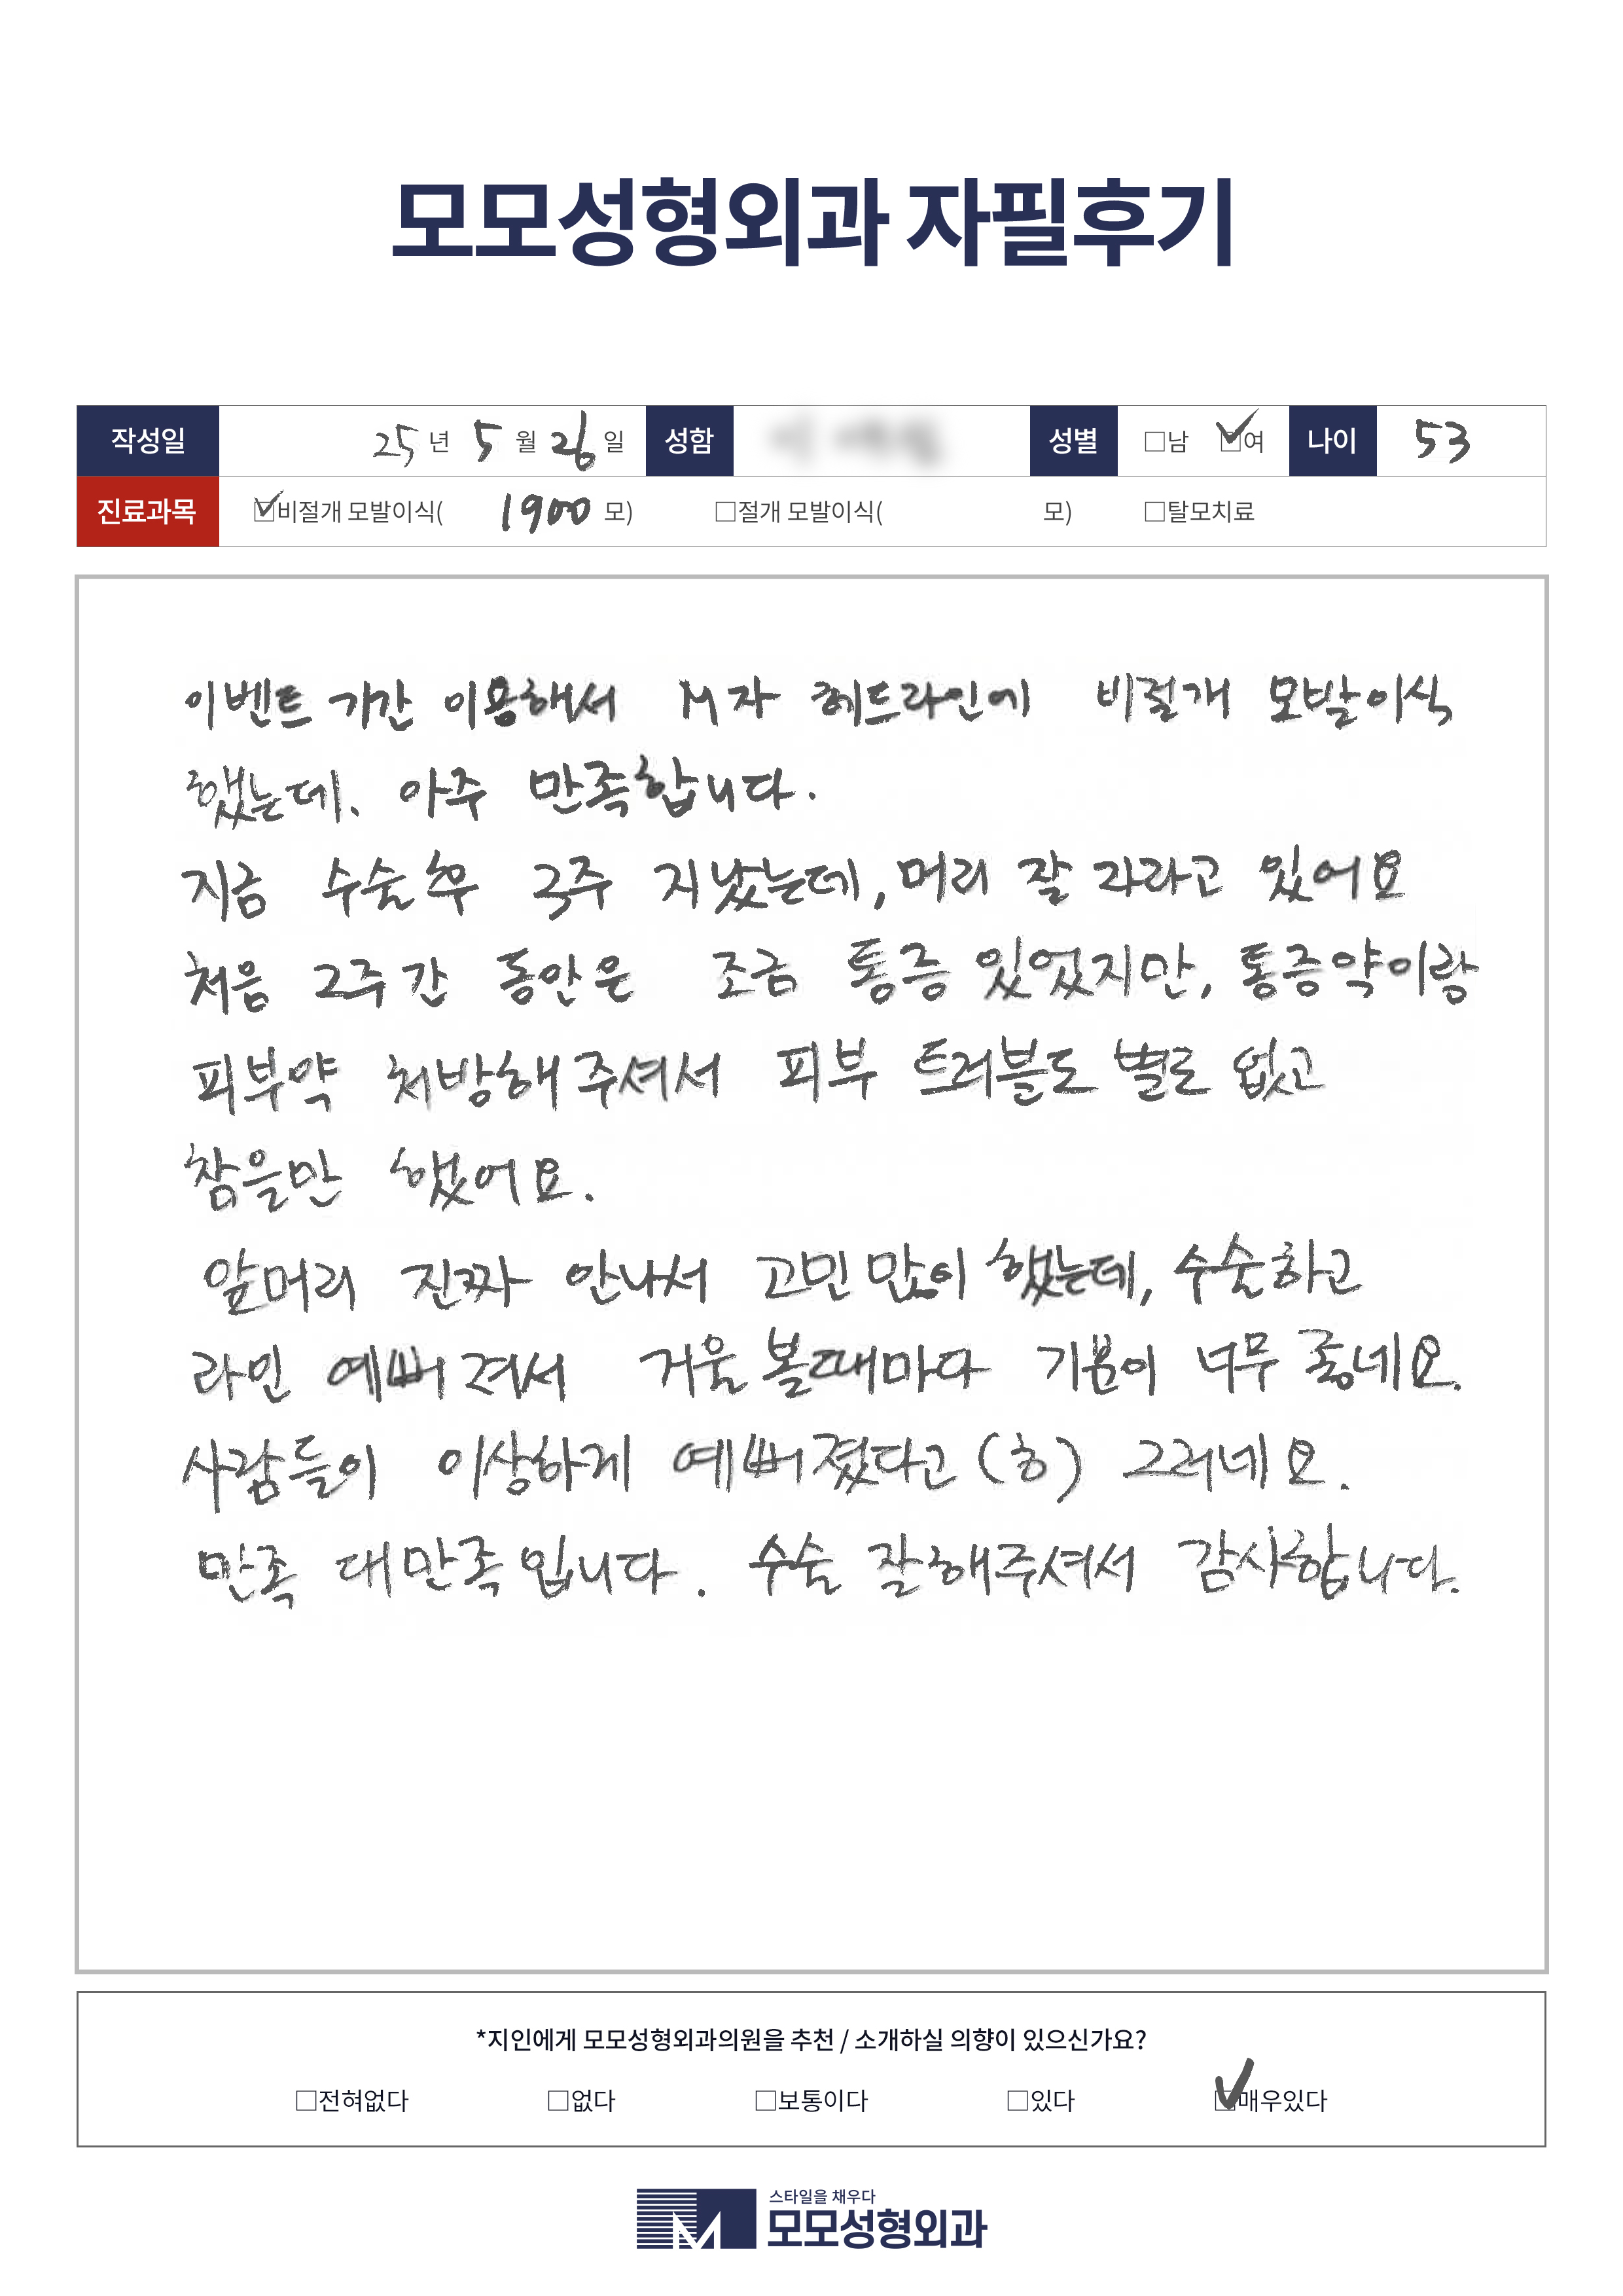 모모성형외과 자필후기
작성일 25 년 5 월 26 일 성함 성별 □남 ☑여 나이 53
진료과목 ☑비절개 모발이식( 1900 모) □절개 모발이식( 모) □탈모치료
이벤트 기간 이용해서 M자 헤드라인에 비절개 모발이식
했는데. 아주 만족합니다.
지금 수술후 3주 지났는데, 머리 잘 자라고 있어요
처음 2주간 동안은 조금 통증 있었지만, 통증약이랑
피부약 처방해주셔서 피부 트러블도 별로 없고
참을만 했어요.
앞머리 진짜 안나서 고민 많이 했는데, 수술하고
라인 예뻐져서 거울 볼때마다 기분이 너무 좋네요.
사람들이 이상하게 예뻐졌다고 (ㅎ) 그러네요.
만족 대만족입니다. 수술 잘해주셔서 감사합니다.
*지인에게 모모성형외과의원을 추천 / 소개하실 의향이 있으신가요?
□전혀없다 □없다 □보통이다 □있다 ☑매우있다
스타일을 채우다
모모성형외과